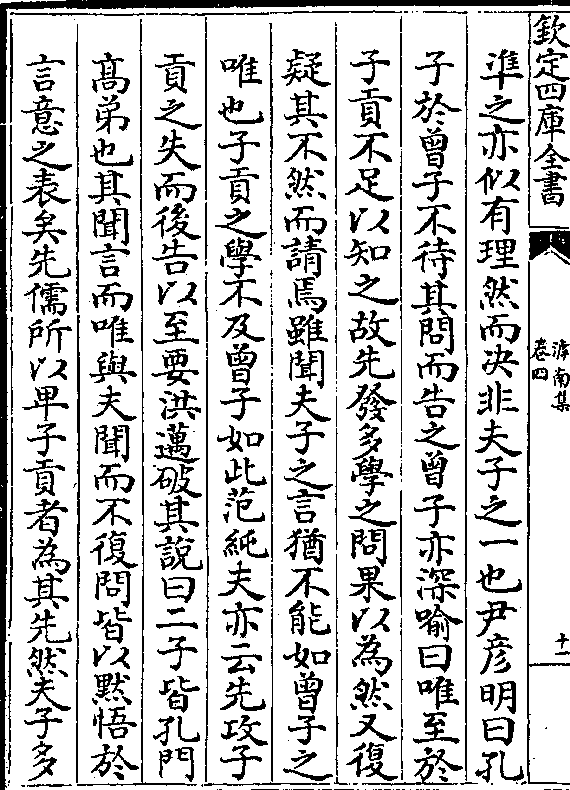 欽定四庫全書
滹南集
卷四
十一
準之亦似有理然而决非夫子之一也尹彦明曰孔
子於曾子不待其問而告之曾子亦深喻曰唯至於
子貢不足以知之故先發多學之問果以為然又復
疑其不然而請焉雖聞夫子之言猶不能如曾子之
唯也子貢之學不及曾子如此范純夫亦云先攻子
貢之失而後告以至要洪邁破其説曰二子皆孔門
髙弟也其聞言而唯與夫聞而不復問皆以黙悟於
言意之表矣先儒所以卑子貢者為其先然夫子多